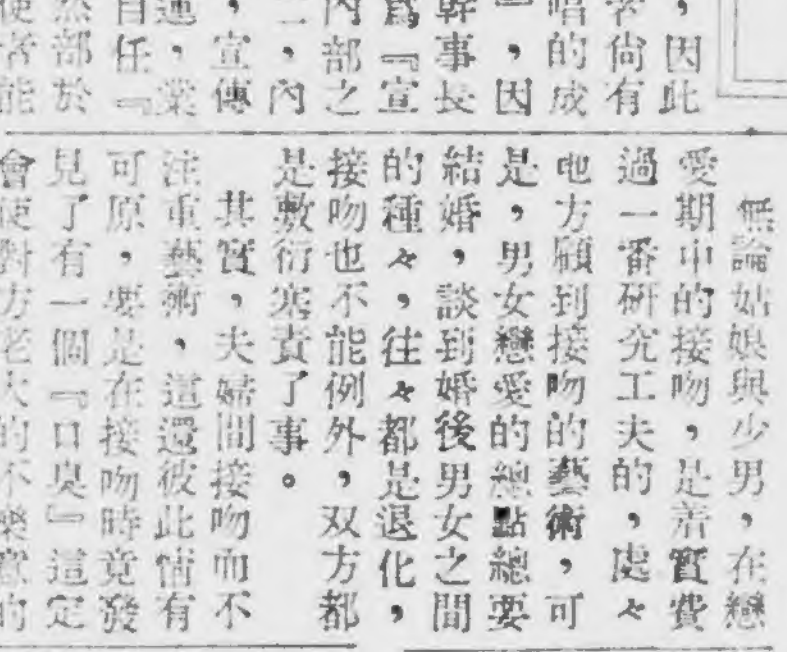 ，因此
尚有
唱的成
』，因
幹事長
爲『宣
內部之
二，內
，宣傳
運，業
自任『
然部於
使者能
無論姑娘與少男，在戀
愛期中的接吻，是着實費
過一番研究工夫的，處々
地方顧到接吻的藝術，可
是，男女戀愛的總點總要
結婚，談到婚後男女之間
的種々，往々都是退化，
接吻也不能例外，双方都
是敷衍塞責了事。
其實，夫婦間接吻而不
注重藝術，這還彼此情有
可原，要是在接吻時竟發
見了有一個『口臭』這定
會使對方老大的不樂意的